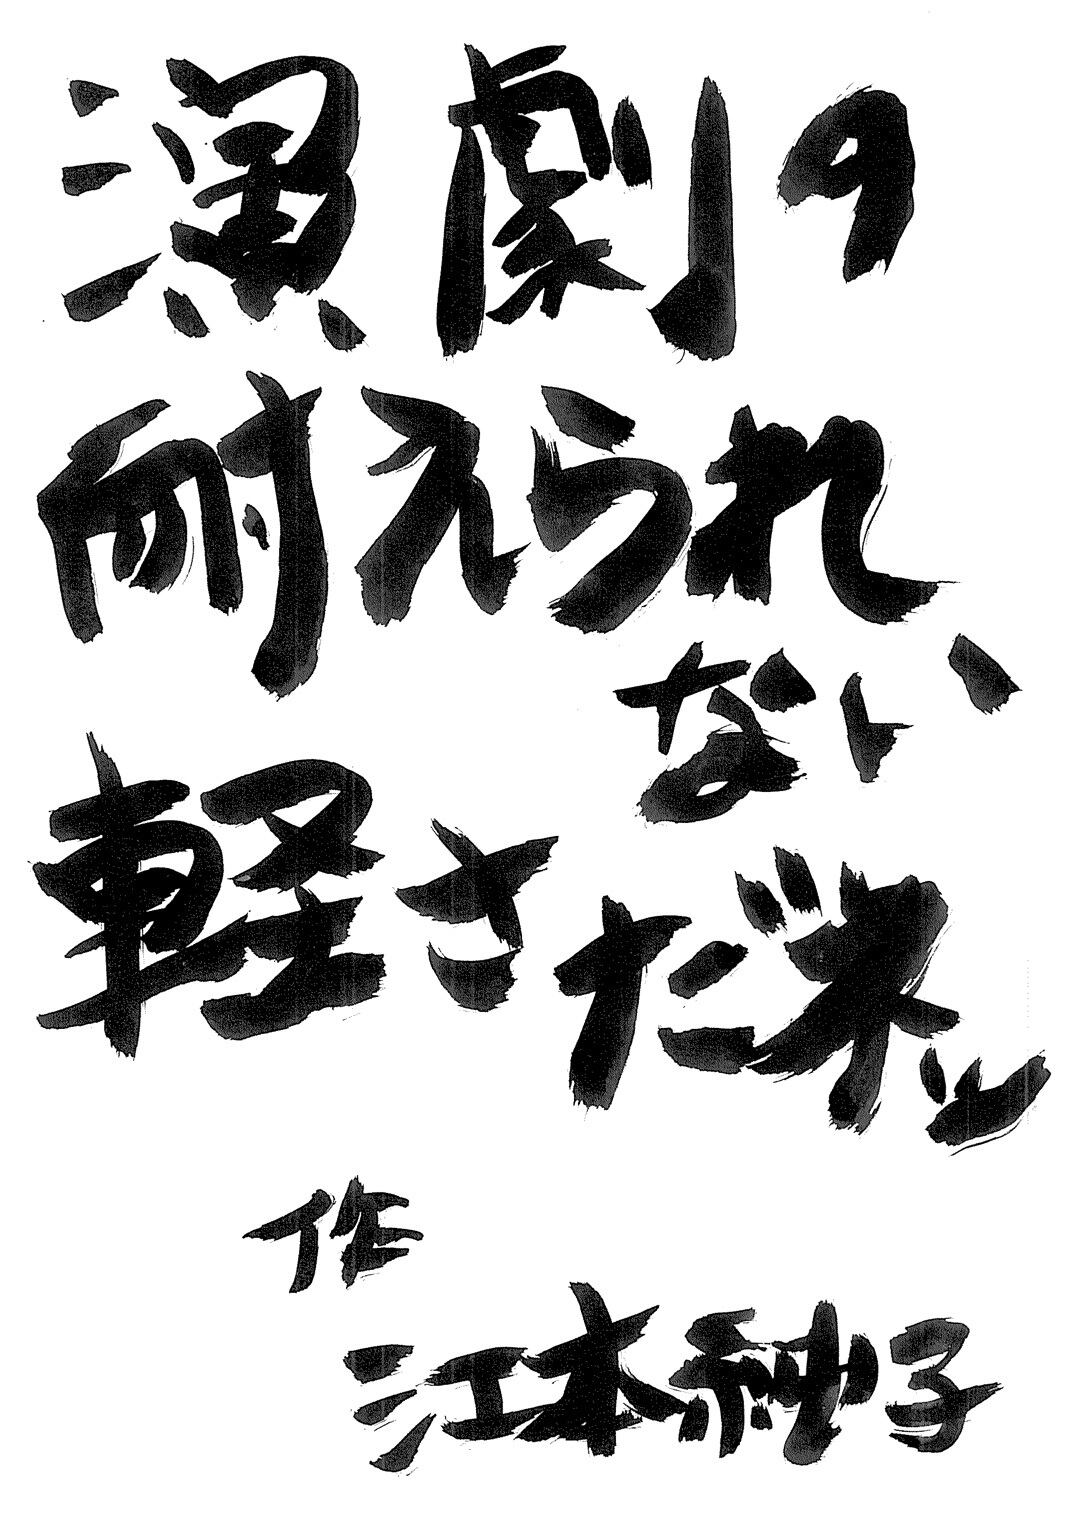 演劇の
耐えられ
ない
軽さ
だネッ
作
江本純子